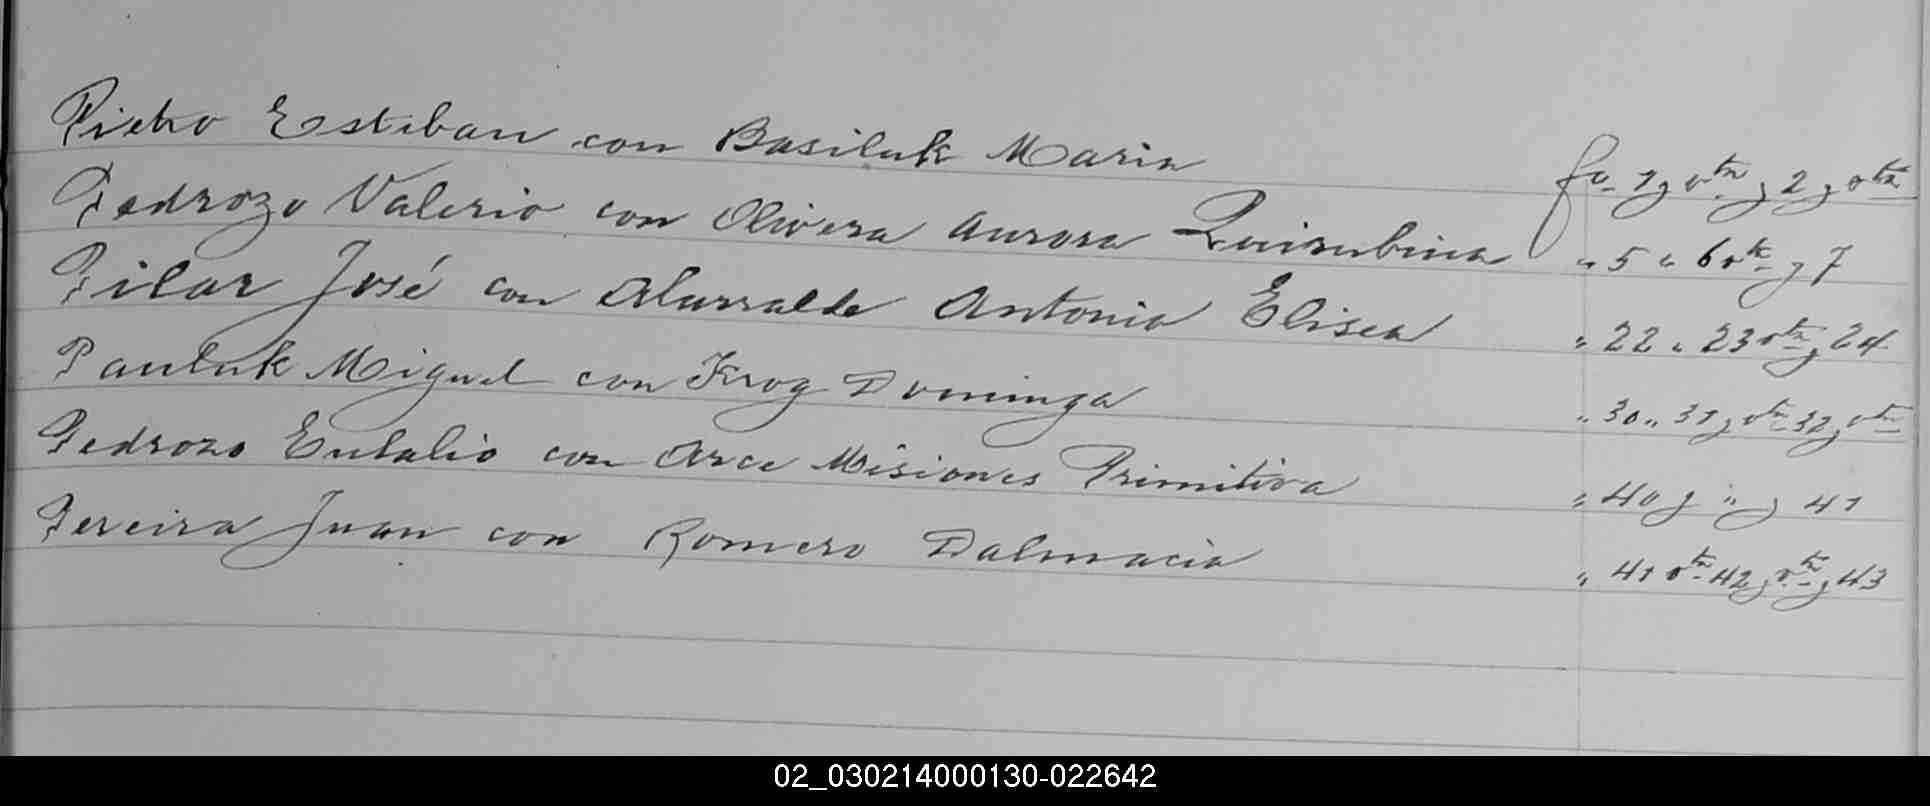 Pietro Esteban con Basiluk Maria fo. 1 y vta y 2 y vta
Pedrozo Valerio con Olivera Aurora Quirubina " 5 " 6 vta y 7
Pilar José con Alurralde Antonia Elisea " 22 " 23 vta y 24
Pauluk Miguel con Krog Dominga " 30 " 31 y vta 32 y vta
Pedrozo Eulalio con Arce Misiones Primitiva " 40 y " y 41
Pereira Juan con Romero Dalmacia " 41 vta 42 y vta y 43
02_030214000130-022642